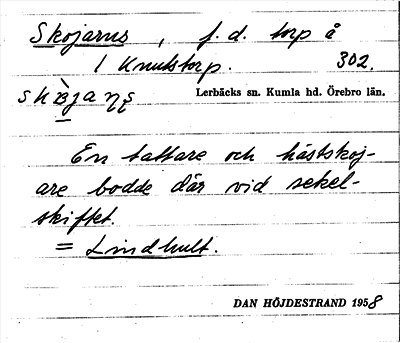 Skojarns, f. d. torp å
1 Knutstorp. 302.
Lerbäcks sn. Kumla hd. Örebro län.
En tattare och hästskoj-
are bodde där vid sekel-
skiftet.
= Lindhult.
DAN HÖJDESTRAND 1958